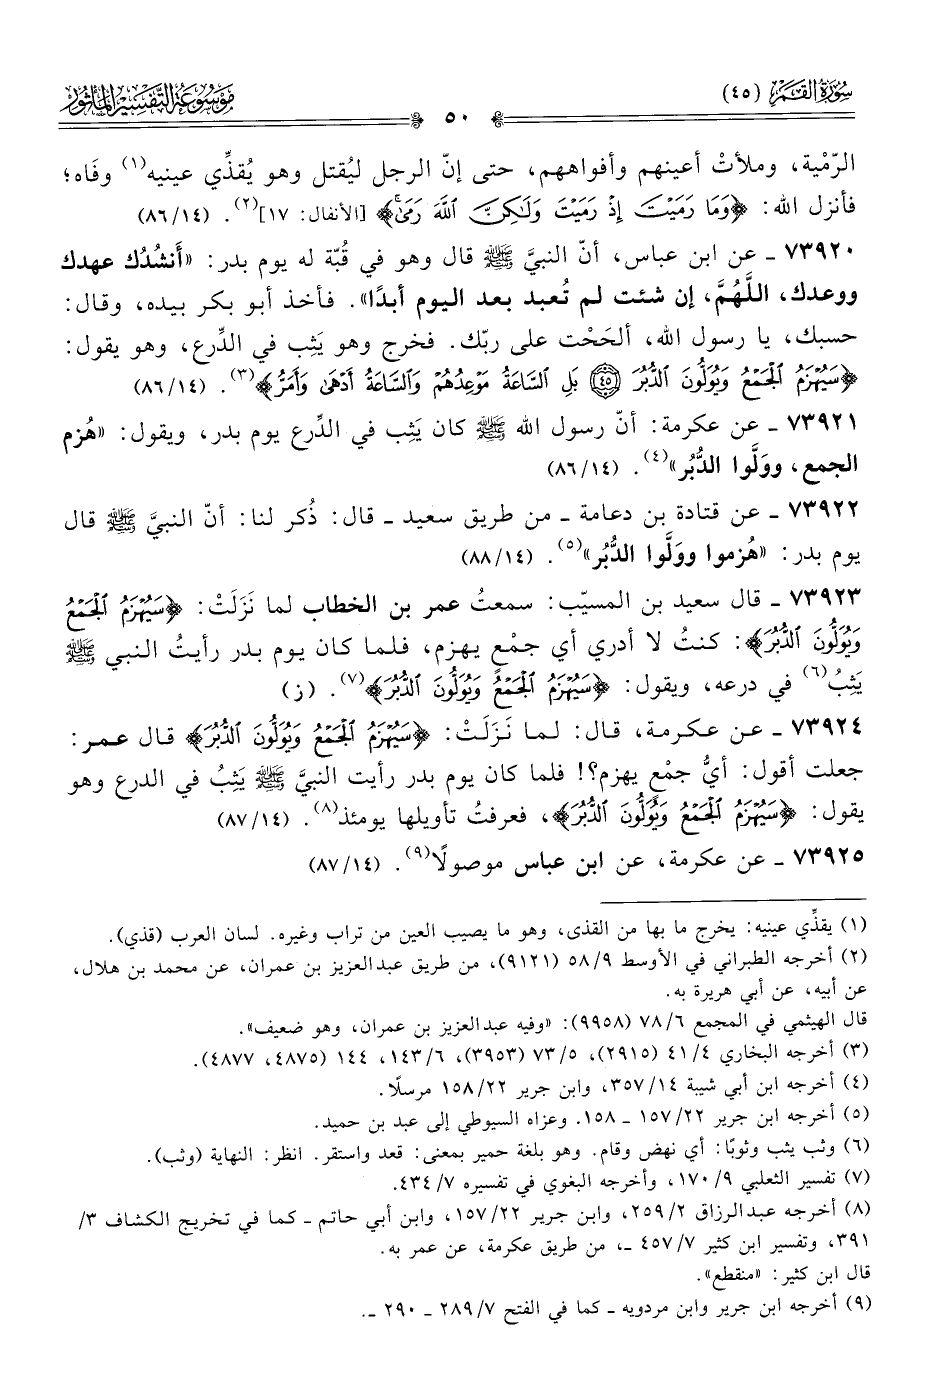 سورة القمر (٤٥)
موسوعة التفسير المأثور
٥٠
الرّمْية، وملأتْ أعينهم وأفواههم، حتى إنّ الرجل ليُقتل وهو يُقذِّي عينيه(١) وفَاه؛
فأنزل الله: ﴿وَمَا رَمَيْتَ إِذْ رَمَيْتَ وَلَٰكِنَّ ٱللَّهَ رَمَىٰ﴾ [الأنفال: ١٧](٢). (٨٦/١٤)
٧٣٩٢٠ ـ عن ابن عباس، أنّ النبيَّ ﷺ قال وهو في قُبّة له يوم بدر: «أَنشُدُك عهدك
ووعدك، اللَّهُمَّ، إن شئت لم تُعبد بعد اليوم أبدًا». فأخذ أبو بكر بيده، وقال:
حسبك، يا رسول الله، ألحَحْت على ربّك. فخرج وهو يَثِب في الدِّرع، وهو يقول:
﴿سَيُهْزَمُ ٱلْجَمْعُ وَيُوَلُّونَ ٱلدُّبُرَ ۝٤٥ بَلِ ٱلسَّاعَةُ مَوْعِدُهُمْ وَٱلسَّاعَةُ أَدْهَىٰ وَأَمَرُّ﴾(٣). (٨٦/١٤)
٧٣٩٢١ ـ عن عكرمة: أنّ رسول الله ﷺ كان يَثِب في الدِّرع يوم بدر، ويقول: «هُزم
الجمع، وولَّوا الدُّبُر»(٤). (٨٦/١٤)
٧٣٩٢٢ ـ عن قتادة بن دعامة ـ من طريق سعيد ـ قال: ذُكر لنا: أنّ النبيَّ ﷺ قال
يوم بدر: «هُزموا وولَّوا الدُّبُر»(٥). (٨٨/١٤)
٧٣٩٢٣ ـ قال سعيد بن المسيّب: سمعتُ عمر بن الخطاب لما نَزَلَتْ: ﴿سَيُهْزَمُ ٱلْجَمْعُ
وَيُوَلُّونَ ٱلدُّبُرَ﴾: كنتُ لا أدري أي جمْع يهزم، فلما كان يوم بدر رأيتُ النبي ﷺ
يَثِبُ(٦) في درعه، ويقول: ﴿سَيُهْزَمُ ٱلْجَمْعُ وَيُوَلُّونَ ٱلدُّبُرَ﴾(٧). (ز)
٧٣٩٢٤ ـ عن عكرمة، قال: لما نَزَلَتْ: ﴿سَيُهْزَمُ ٱلْجَمْعُ وَيُوَلُّونَ ٱلدُّبُرَ﴾ قال عمر:
جعلت أقول: أيُّ جمْعٍ يهزم؟! فلما كان يوم بدر رأيت النبيَّ ﷺ يَثِبُ في الدرع وهو
يقول: ﴿سَيُهْزَمُ ٱلْجَمْعُ وَيُوَلُّونَ ٱلدُّبُرَ﴾، فعرفتُ تأويلها يومئذ(٨). (٨٧/١٤)
٧٣٩٢٥ ـ عن عكرمة، عن ابن عباس موصولًا(٩). (٨٧/١٤)
(١) يقذِّي عينيه: يخرج ما بها من القذى، وهو ما يصيب العين من تراب وغيره. لسان العرب (قذي).
(٢) أخرجه الطبراني في الأوسط ٥٨/٩ (٩١٢١)، من طريق عبدالعزيز بن عمران، عن محمد بن هلال،
عن أبيه، عن أبي هريرة به.
قال الهيثمي في المجمع ٧٨/٦ (٩٩٥٨): «وفيه عبدالعزيز بن عمران، وهو ضعيف».
(٣) أخرجه البخاري ٤١/٤ (٢٩١٥)، ٧٣/٥ (٣٩٥٣)، ١٤٣/٦، ١٤٤ (٤٨٧٥، ٤٨٧٧).
(٤) أخرجه ابن أبي شيبة ٣٥٧/١٤، وابن جرير ١٥٨/٢٢ مرسلًا.
(٥) أخرجه ابن جرير ١٥٧/٢٢ ـ ١٥٨. وعزاه السيوطي إلى عبد بن حميد.
(٦) وثب يثب وثوبًا: أي نهض وقام. وهو بلغة حمير بمعنى: قعد واستقر. انظر: النهاية (وثب).
(٧) تفسير الثعلبي ١٧٠/٩، وأخرجه البغوي في تفسيره ٤٣٤/٧.
(٨) أخرجه عبدالرزاق ٢٥٩/٢، وابن جرير ١٥٧/٢٢، وابن أبي حاتم ـ كما في تخريج الكشاف ٣/
٣٩١، وتفسير ابن كثير ٤٥٧/٧ ـ، من طريق عكرمة، عن عمر به.
قال ابن كثير: «منقطع».
(٩) أخرجه ابن جرير وابن مردويه ـ كما في الفتح ٢٨٩/٧ ـ ٢٩٠ ـ.